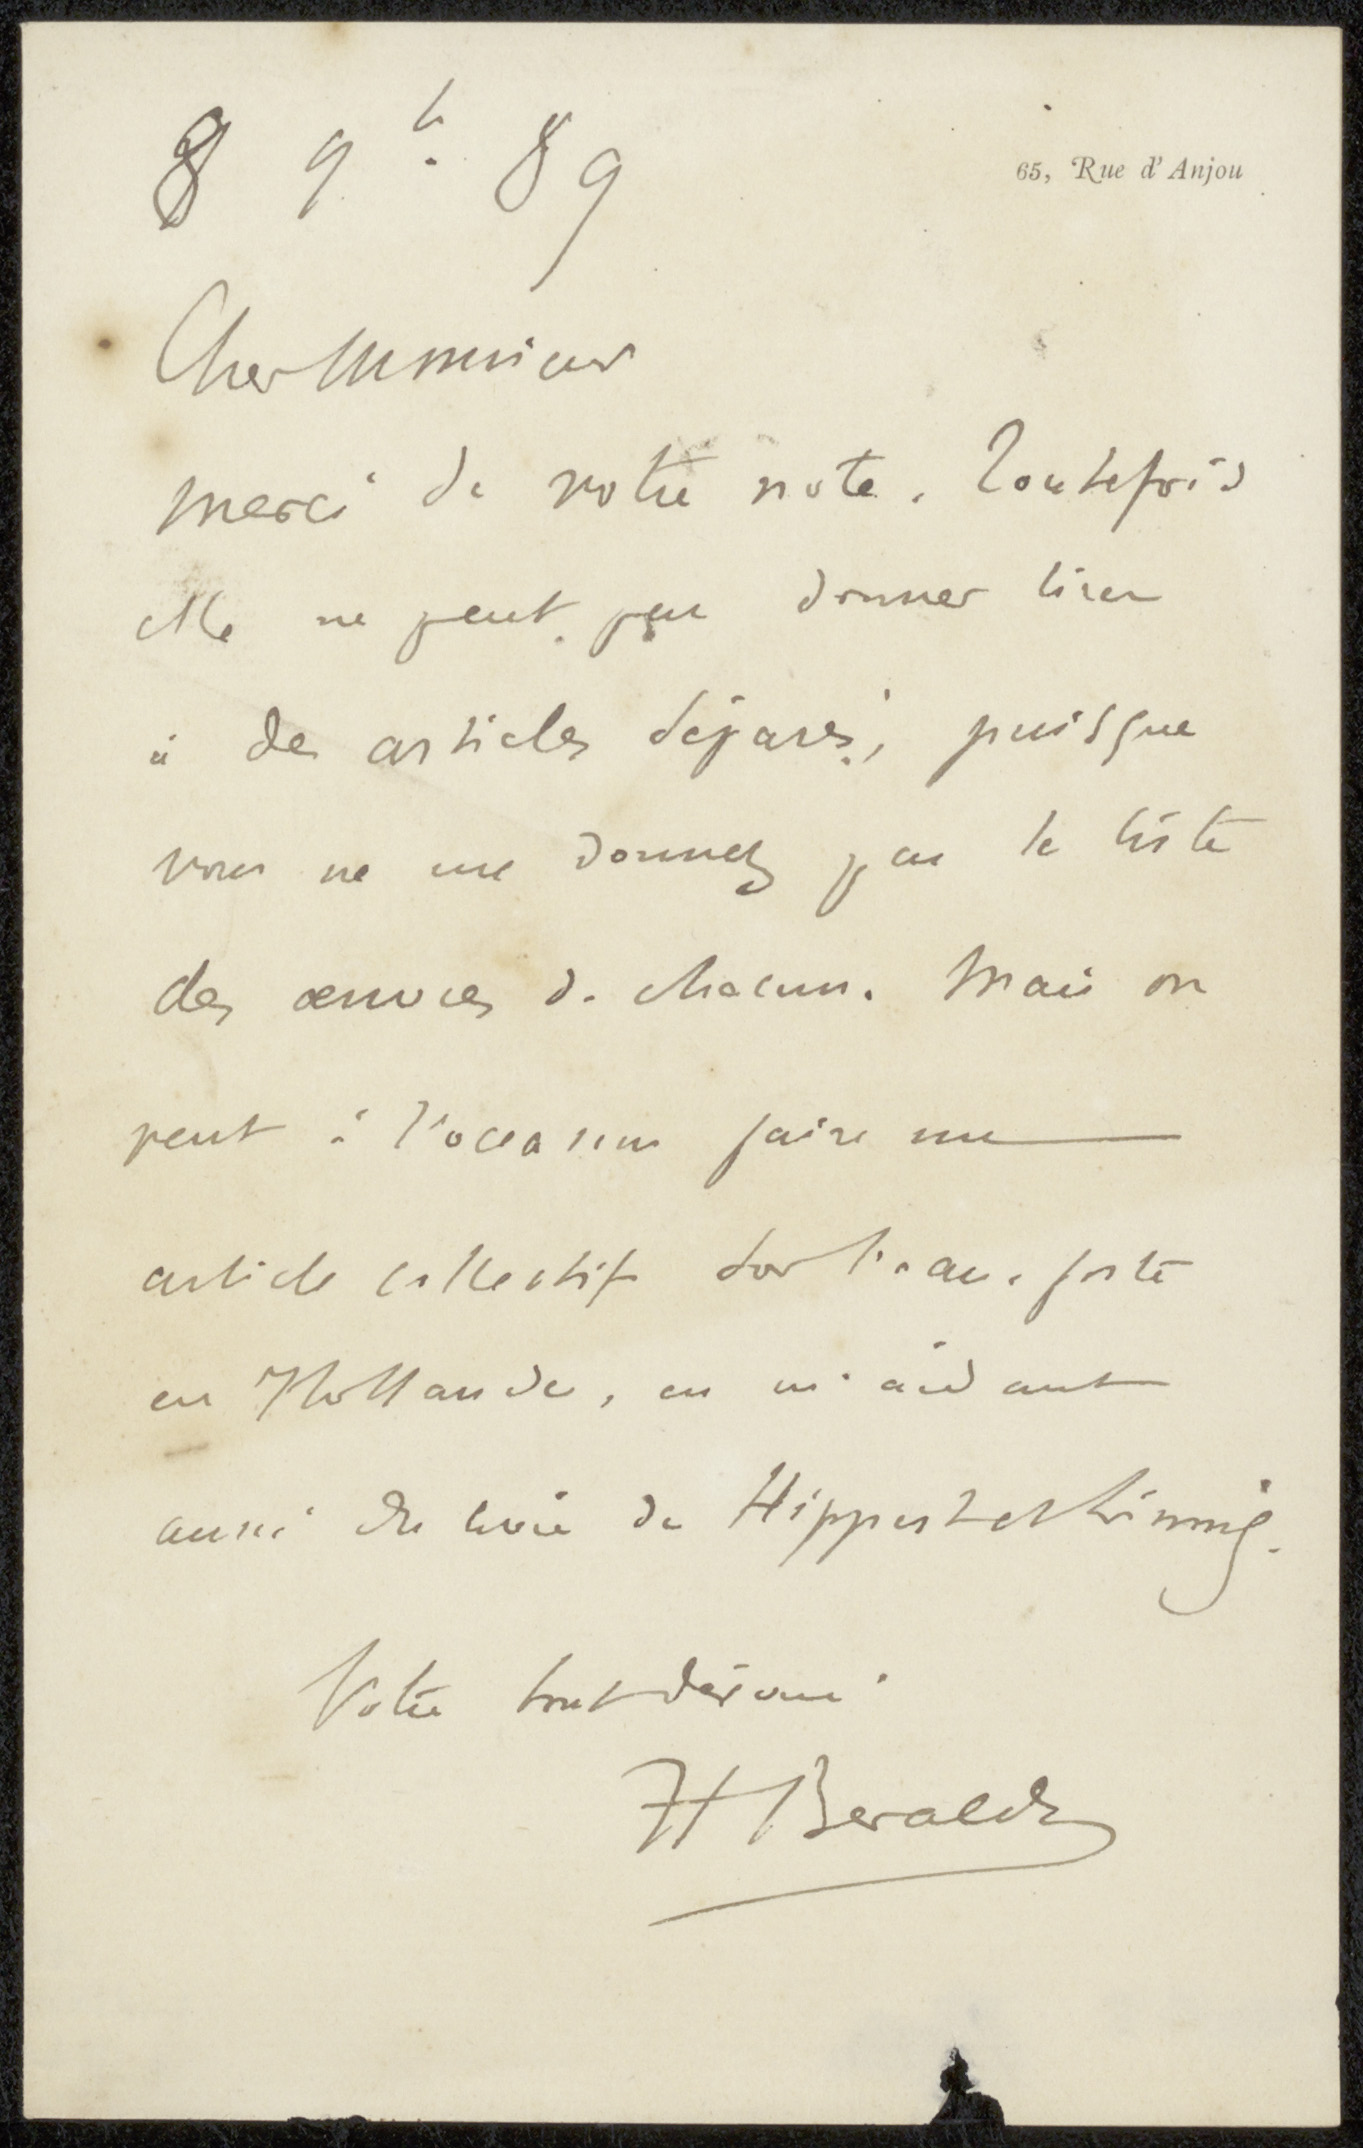 8 9b. 89
65, Rue d'Anjou
Cher Monsieur
merci de votre note. Toutefois
elle ne peut pas donner lieu
à des articles séparés, puisque
vous ne me donnez pas la liste
des œuvres de chacun. Mais on
peut à l'occasion faire un
article collectif sur l'eau-forte
en Hollande, en m'aidant
aussi du livre de Hippert et Linnig.
Votre tout dévoué
H Beraldi